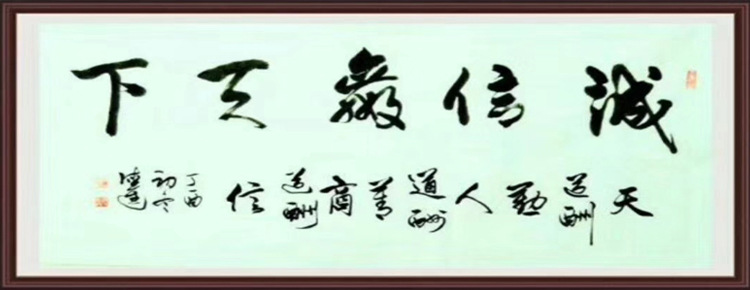 誠信贏天下
天道酬勤人道酬善商道酬信
丁酉
初冬